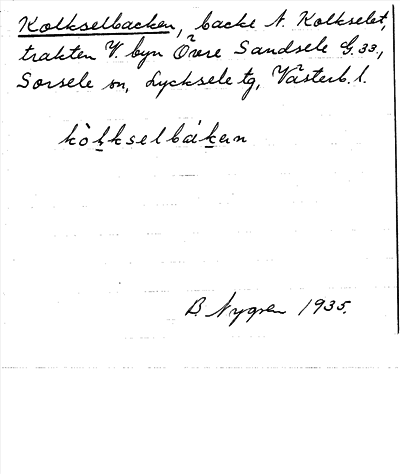 Kolkselbacken, backe N. Kolkselet,
trakten V. byn Övre Sandsele G. 33,
Sorsele sn, Lycksele tg, Västerb. l.
kòlkselbákærn
B. Nygren 1935.